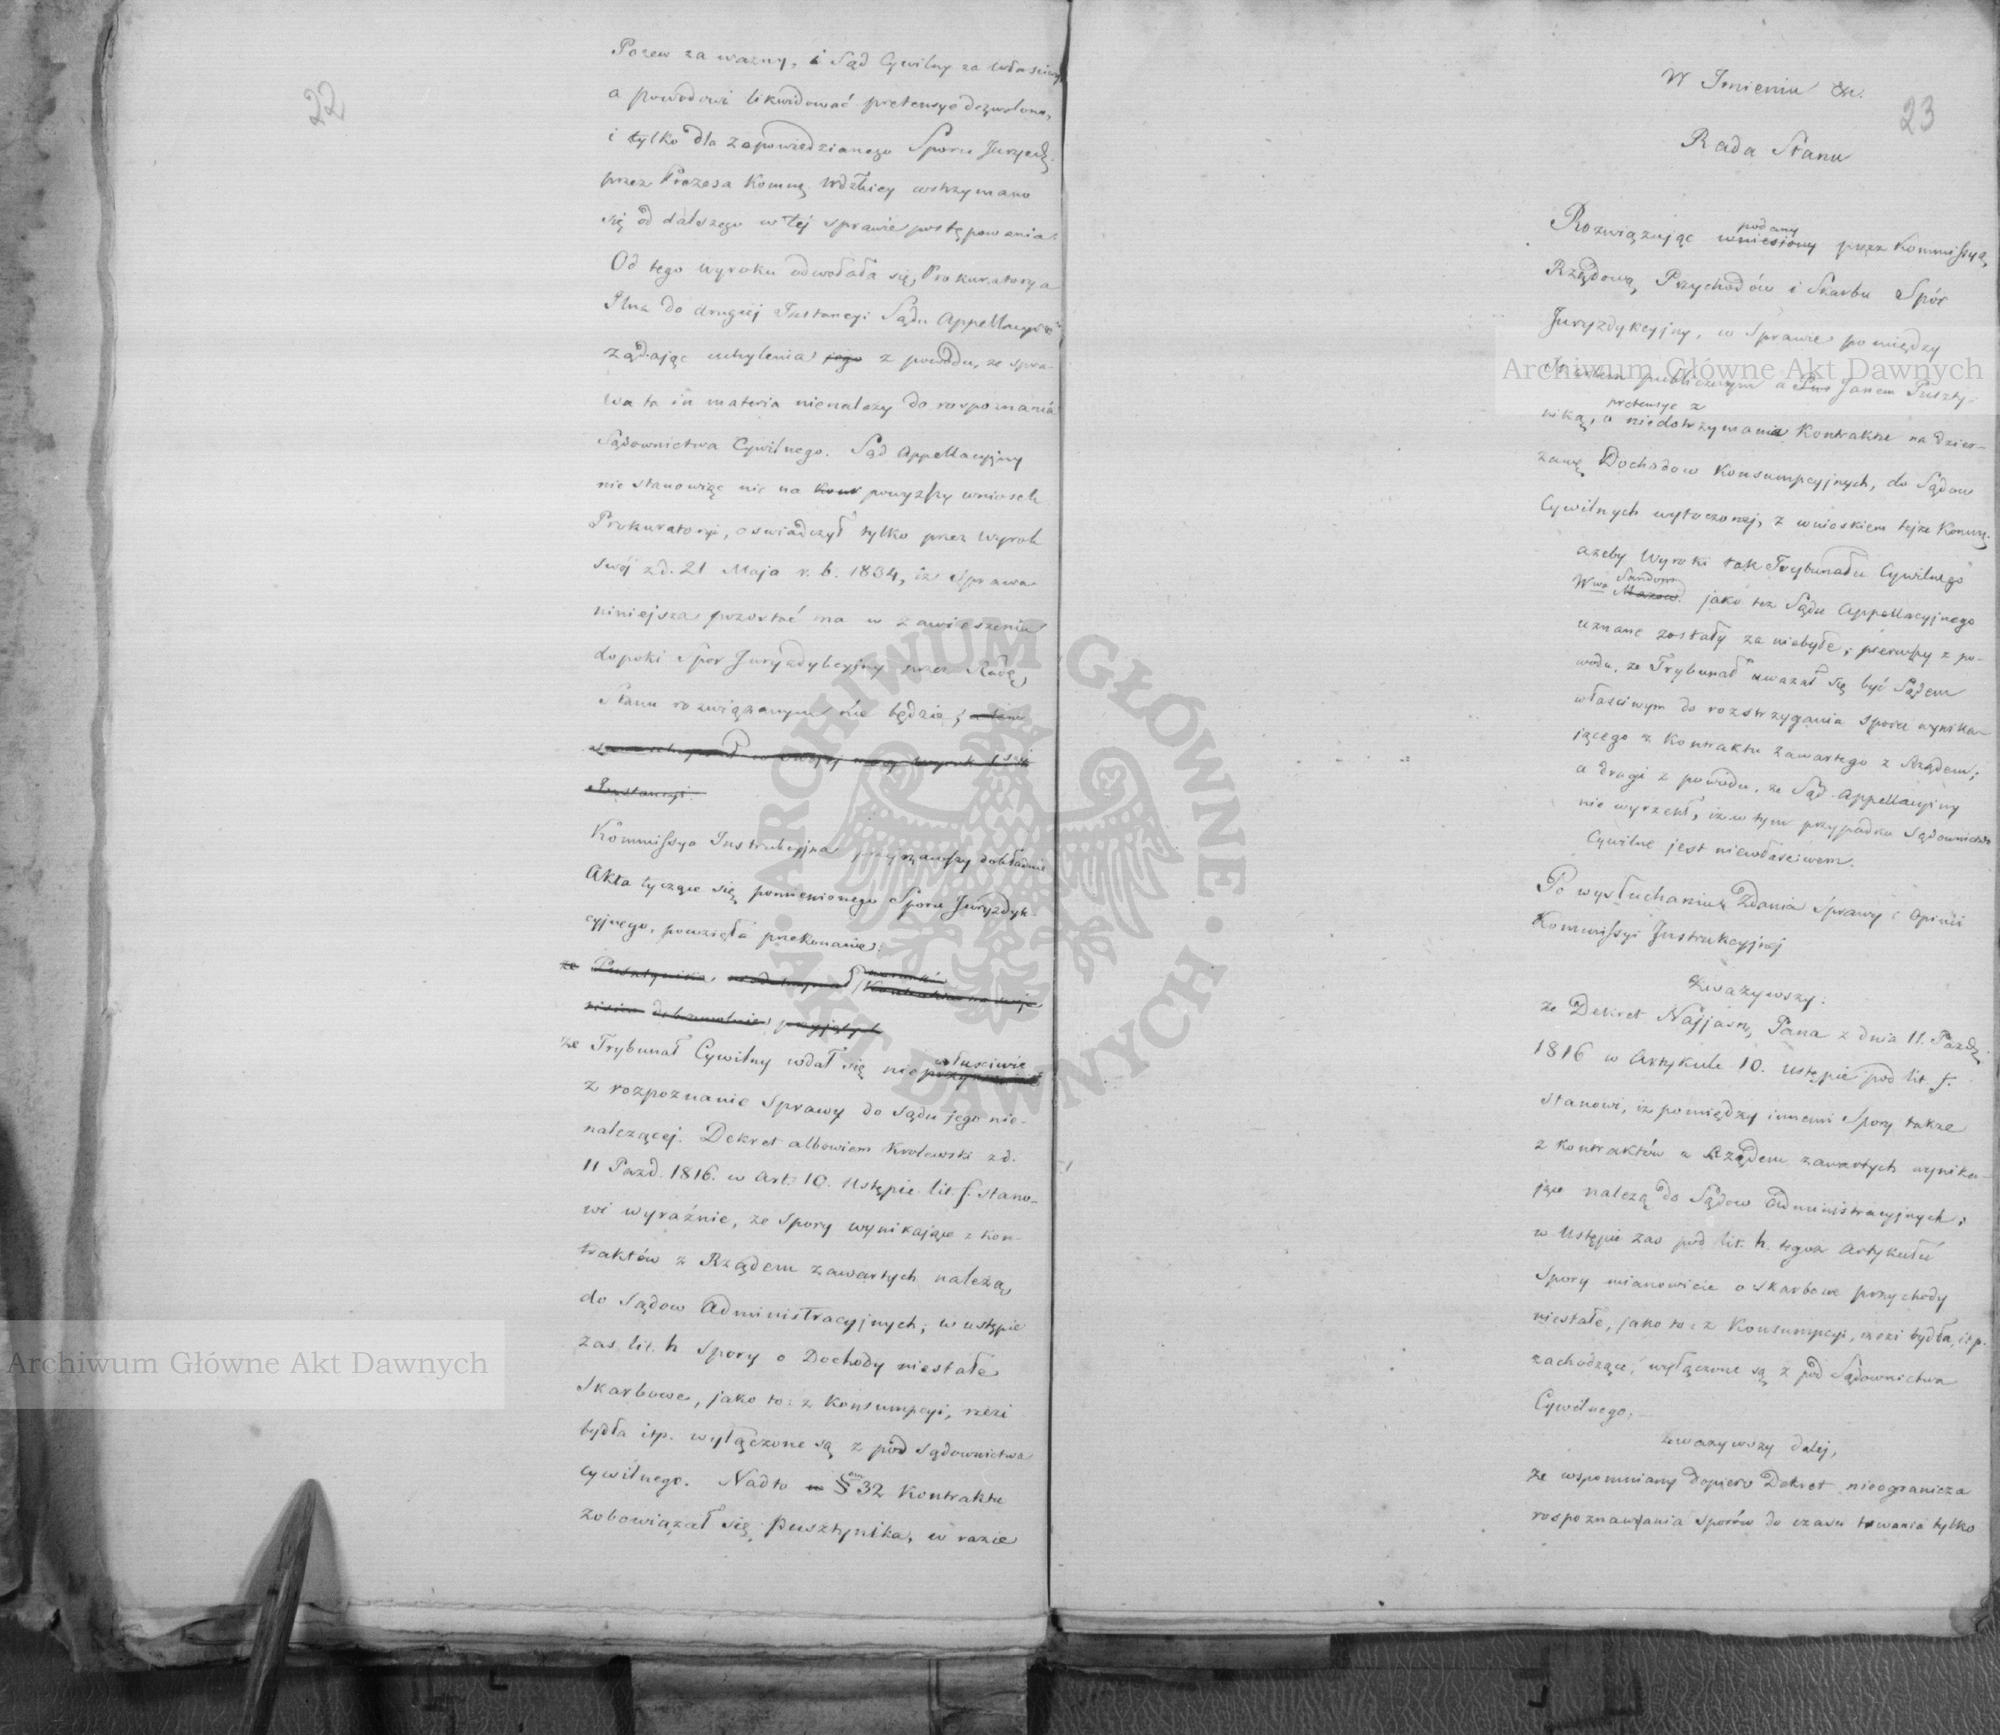 22
Pozew za ważny, i Sąd Cywilny za właściwy
a powodowi likwidować pretensye dozwolono,
i tylko dla zapowiedzianego Sporu Juryzd.
przez Prezesa Kommę Wdzkiey wstrzymano
się od dalszego w tej sprawie postępowania.
Od tego wyroku odwołała się, Prokuratorya
Jlna do drugiej Instancyi Sądu Appellacyjn.
żądając uchylenia jego z powodu, że spra-
wa ta in materia nienależy do rozpoznania
Sądownictwa Cywilnego. Sąd Appellacyjny
nie stanowiąc nic na powyższy wniosek
Prokuratoryi, oświadczył tylko przez Wyrok
swój z d. 21 Maja r. b. 1834, iż Sprawa
niniejsza pozostać ma w zawieszeniu
dopóki Spór Juryzdykcyjny przez Radę
Stanu rozwiązanym nie będzie;
Instancyi.
Kommissya Instrukcyjna przejrzawszy dokładnie
Akta tyczące się pomienionego Sporu Juryzdyk-
cyjnego, powzięła przekonanie:
że Pusztynika
dobrowolnie przyjętych
że Trybunał Cywilny wdał się niewłaściwie
z rozpoznanie Sprawy do sądu jego nie-
należącej. Dekret albowiem Krolewski z d.
11 Pazd. 1816. w Art. 10. Ustępie lit. f. stano-
wi wyraźnie, że Spory wynikające z kon-
traktów z Rządem zawartych należą
do Sądow Administracyjnych; w ustępie
zas lit. h Spory o Dochody niestałe
Skarbowe, jako to: z Konsumpcyi, rzezi
bydła itp. wyłączone są z pod Sądownictwa
cywilnego. Nadto § 32 Kontraktu
zobowiązał się Pusztynika, w razie
W Imieniu &c.
23
Rada Stanu
podany
Rozwiązując wniesiony przez Kommissyą
Rządową Przychodów i Skarbu Spór
Juryzdykcyjny, w Sprawie pomiędzy
Skarbem publicznym a Janem Puszty-
pretensye z
niką, o niedotrzymania Kontraktu na dzier-
żawę Dochodow Konsumpcyjnych, do Sądow
Cywilnych wytoczonej, z wnioskiem tejże Kommę.
ażeby Wyroki tak Trybunału Cywilnego
Sandom.
Wwa Mazow. jako też Sądu Appellacyjnego
uznane zostały za niebyłe; pierwszy z po-
wodu, że Trybunał uważał się być Sądem
właściwym do rozstrzygania sporu wynika-
jącego z Kontraktu zawartego z Rządem;
a drugi z powodu, że Sąd Appellacyiny
nie wyrzekł, iż w tym przypadku Sądownictwo
Cywilne jest niewłaściwem.
Po wysłuchaniu Zdania Sprawy i Opinii
Kommissyi Instrukcyjnej
Zważywszy:
że Dekret Najjaśn. Pana z dnia 11. Pazdz.
1816 w Artykule 10. ustępie pod lit. f.
stanowi, iż pomiędzy innemi Spory także
z kontraktów z Rządem zawartych wynika-
jące należą do Sądow Administracyjnych;
w Ustępie zas pod lit. h. tegoż Artykułu
Spory mianowicie o skarbowe przychody
niestałe, jako to: z Konsumpcyi, rzezi bydła, itp.
zachodzące, wyłączone są z pod Sądownictwa
Cywilnego,
Zważywszy dalej,
że wspomniany dopiero Dekret nieogranicza
rospoznawania sporów do czasu trwania tylko
Archiwum Główne Akt Dawnych
Archiwum Główne Akt Dawnych
ARCHIWUM GŁÓWNE
AKT DAWNYCH